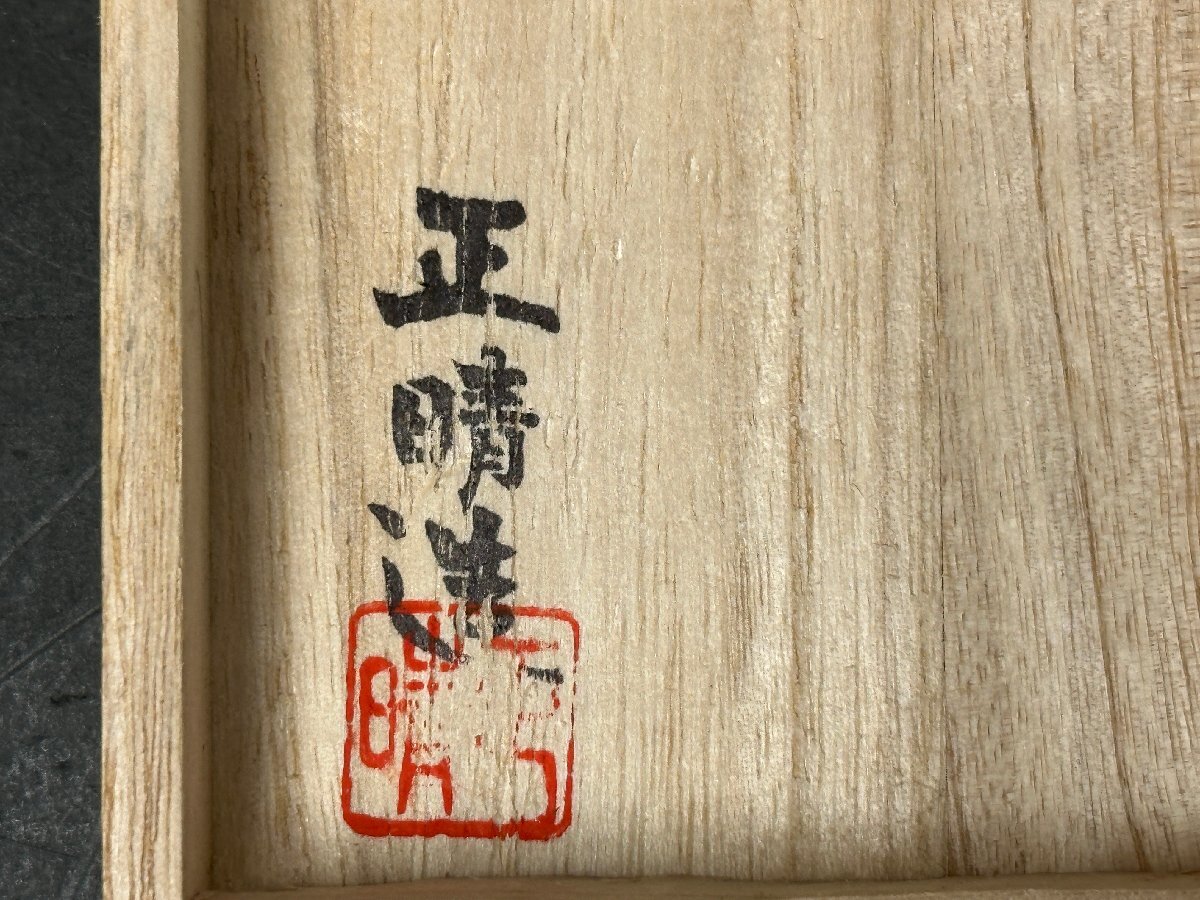 正晴造